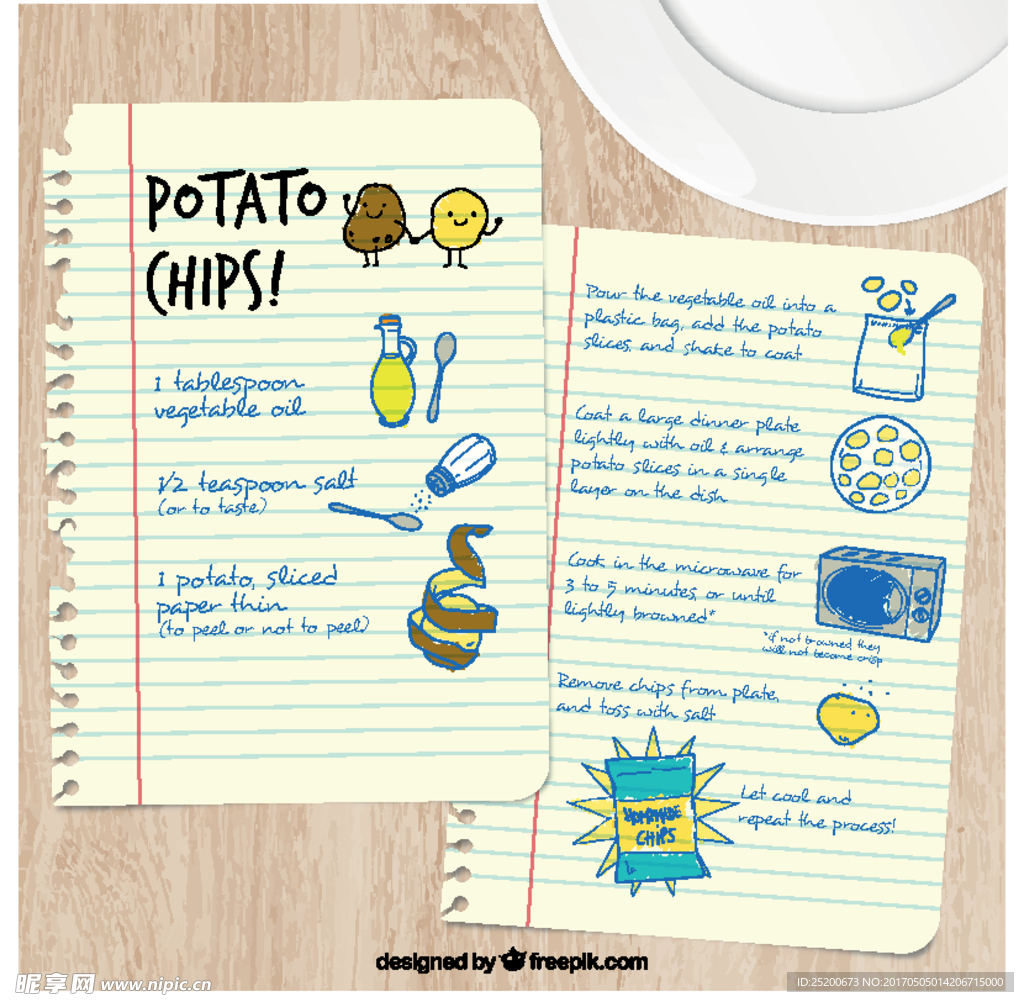 POTATO
CHIPS!
1 tablespoon
vegetable oil
1/2 teaspoon salt
(or to taste)
1 potato, sliced
paper thin
(to peel or not to peel)
Pour the vegetable oil into a
plastic bag, add the potato
slices, and shake to coat
Coat a large dinner plate
lightly with oil & arrange
potato slices in a single
layer on the dish
Cook in the microwave for
3 to 5 minutes, or until
lightly browned*
*if not browned they
will not become crisp
Remove chips from plate,
and toss with salt
HOMEMADE
CHIPS
Let cool and
repeat the process!
designed by freepik.com
昵享网 www.nipic.cn
ID:25200673 NO:20170505014206715000